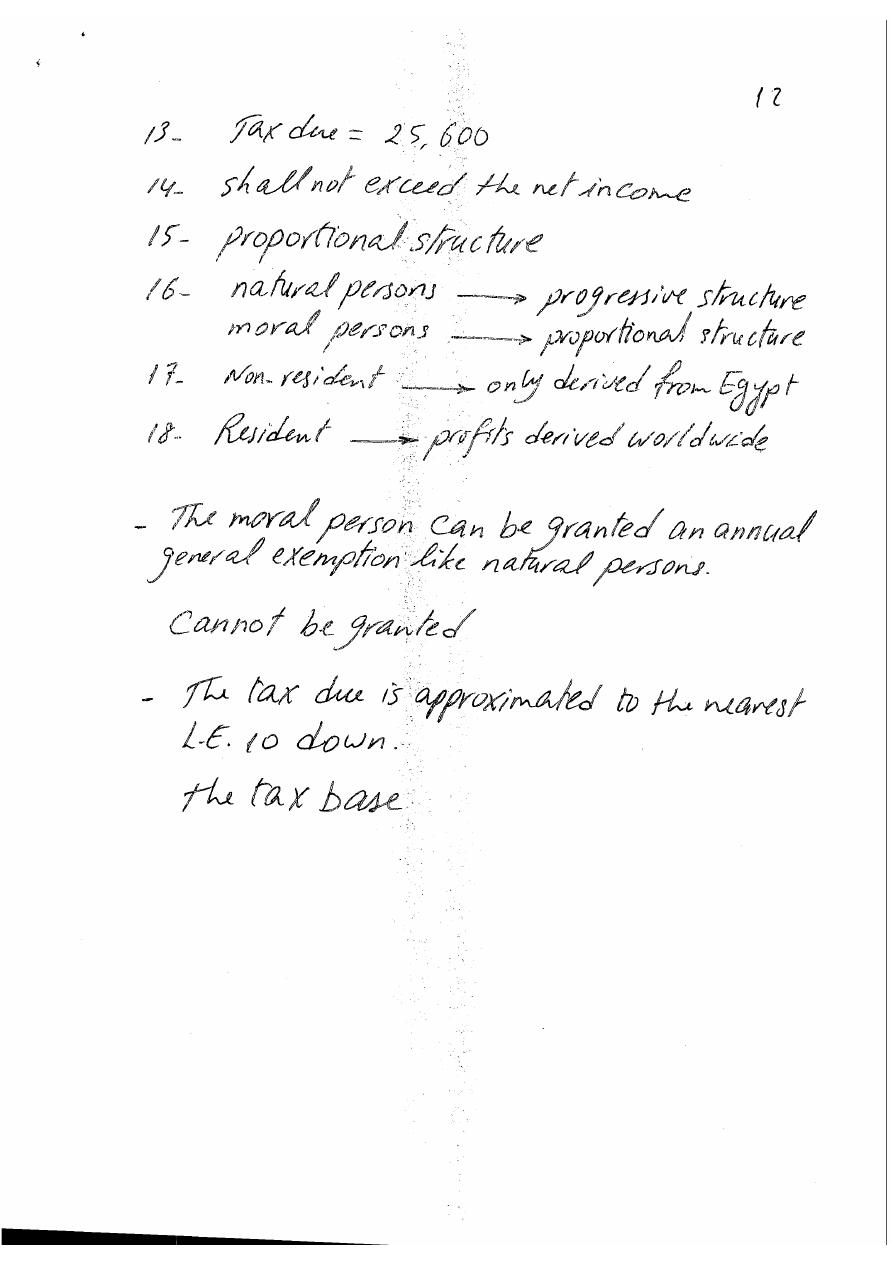 12
13- Tax due = 25,600
14- shall not exceed the net income
15- proportional structure
16- natural persons → progressive structure
moral persons → proportional structure
17- Non-resident → only derived from Egypt
18- Resident → profits derived worldwide
- The moral person can be granted an annual
general exemption like natural persons.
Cannot be granted
- The tax due is approximated to the nearest
L.E. 10 down.
the tax base